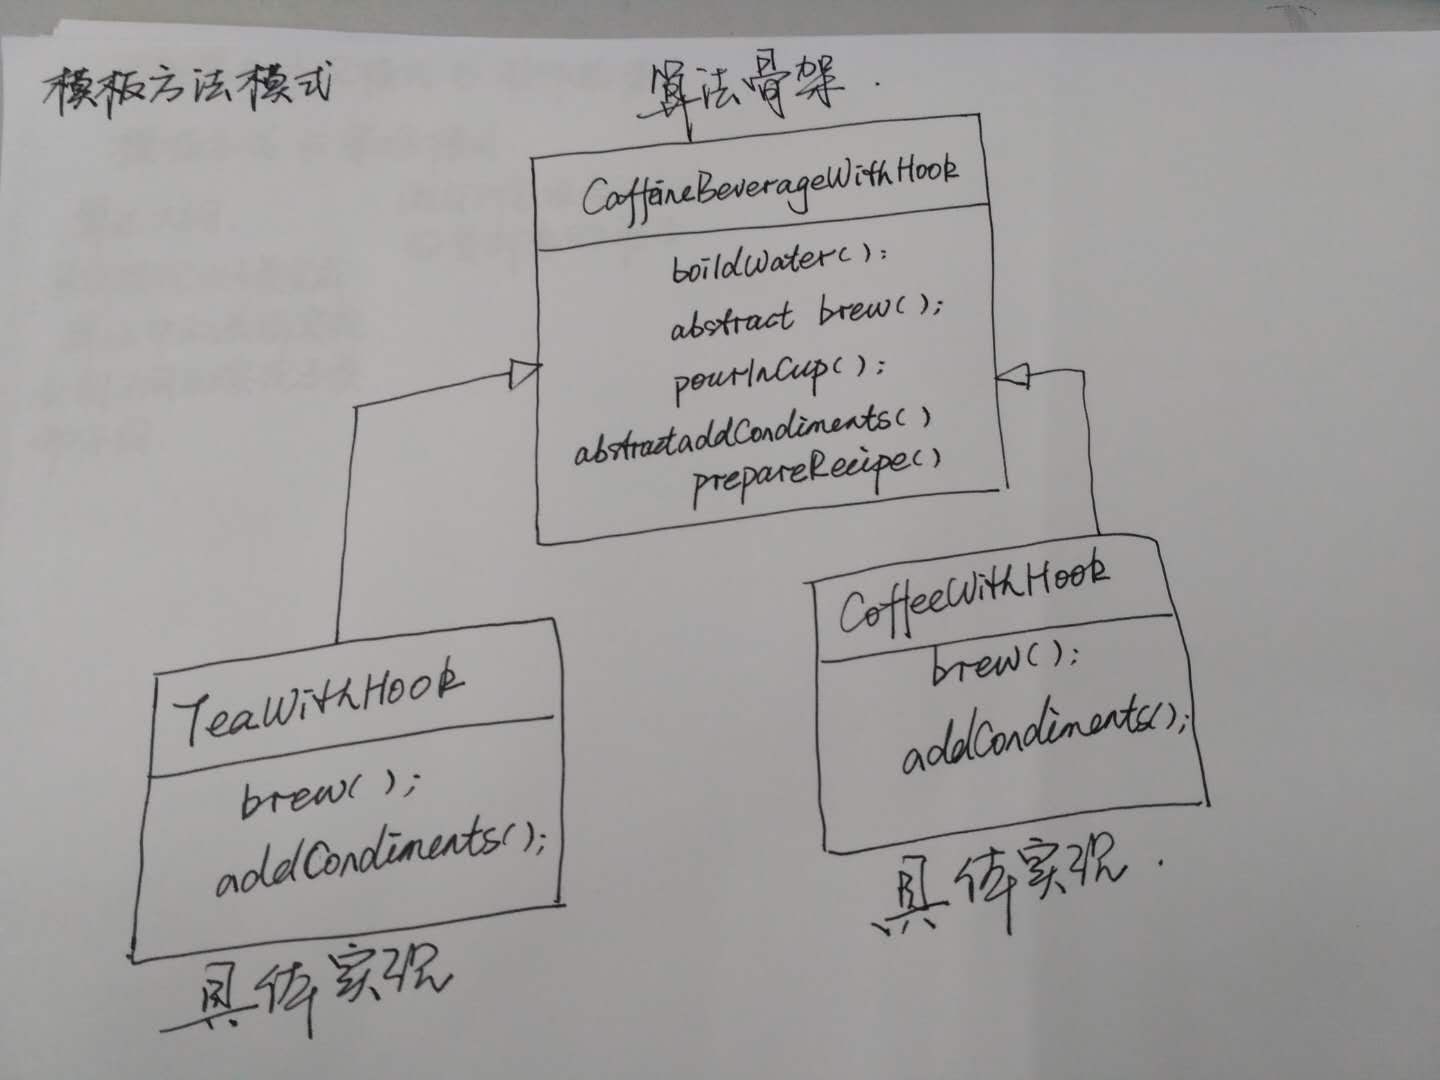 模板方法模式
算法骨架.
CaffeineBeverageWithHook
boildWater();
abstract brew();
pourInCup();
abstractaddCondiments()
prepareRecipe()
TeaWithHook
brew();
addCondiments();
具体实现
CoffeeWithHook
brew();
addCondiments();
具体实现.